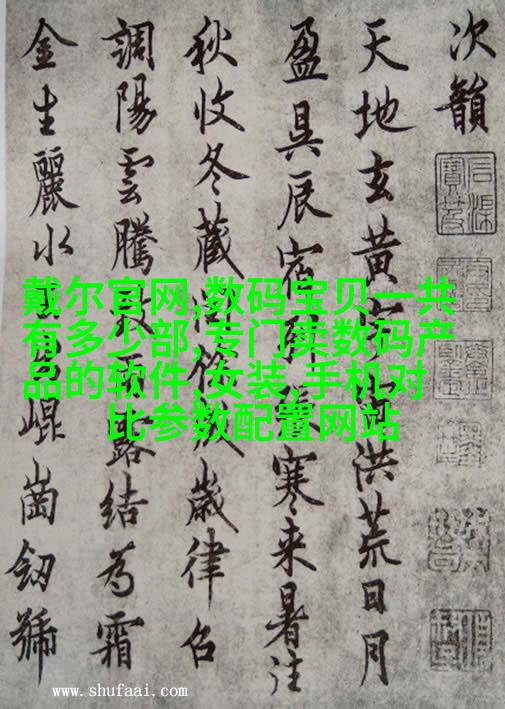 次韻
天地玄黃洪荒日月
盈昃辰宿寒来暑往
秋收冬藏歲律召
調陽雲騰致露結為霜
金生麗水崐崗劒號
戴尔官网,数码宝贝一共
有多少部,专门卖数码产
品的软件,女装,手机对
比参数配置网站
www.shufaai.com